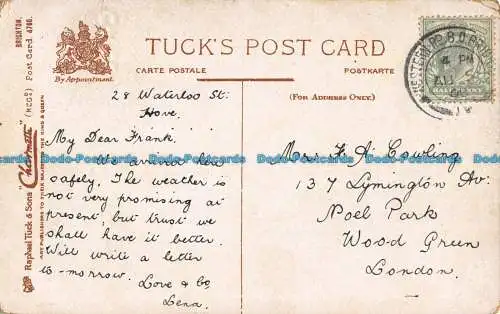 TUCK'S POST CARD
CARTE POSTALE
POSTKARTE
(FOR ADDRESS ONLY.)
By Appointment.
BRIGHTON.
Post Card 4780.
Raphael Tuck & Sons' "Charmette" (REGD)
ART PUBLISHERS TO THEIR MAJESTIES THE KING & QUEEN
28 Waterloo St:
Hove.
My Dear Frank.
We arrived here
safely. The weather is
not very promising at
present, but trust we
shall have it better.
Will write a letter
to-morrow. Love & Co,
Lena.
Mrs. F. A. Cowling
137 Lymington Av:
Noel Park
Wood Green
London.
HALFPENNY
Dodo-Postcards Dodo-Postcards Dodo-Postcards